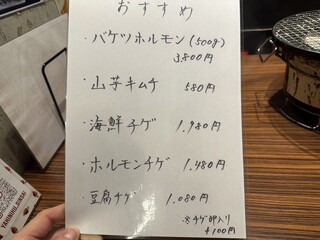 おすすめ
・バケツホルモン(500g)
3,800円
・山芋キムチ 580円
・海鮮チゲ 1,980円
・ホルモンチゲ 1,480円
・豆腐チゲ 1,080円
※チゲ卵入り
+100円